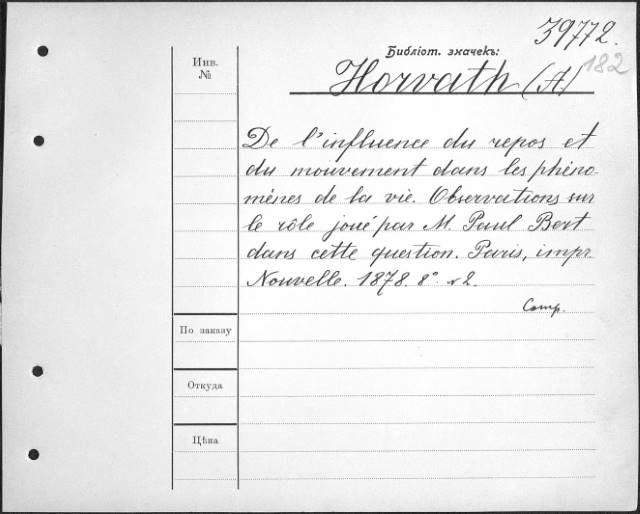 39772.
Библіот. значекъ:
182
Horvath (A)
Инв.
№
De l'influence du repos et
du mouvement dans les phéno-
mènes de la vie. Observations sur
le rôle joué par M. Paul Bert
dans cette question. Paris, impr.
Nouvelle. 1878. 8°.
Comp.
По заказу
Откуда
Цѣна